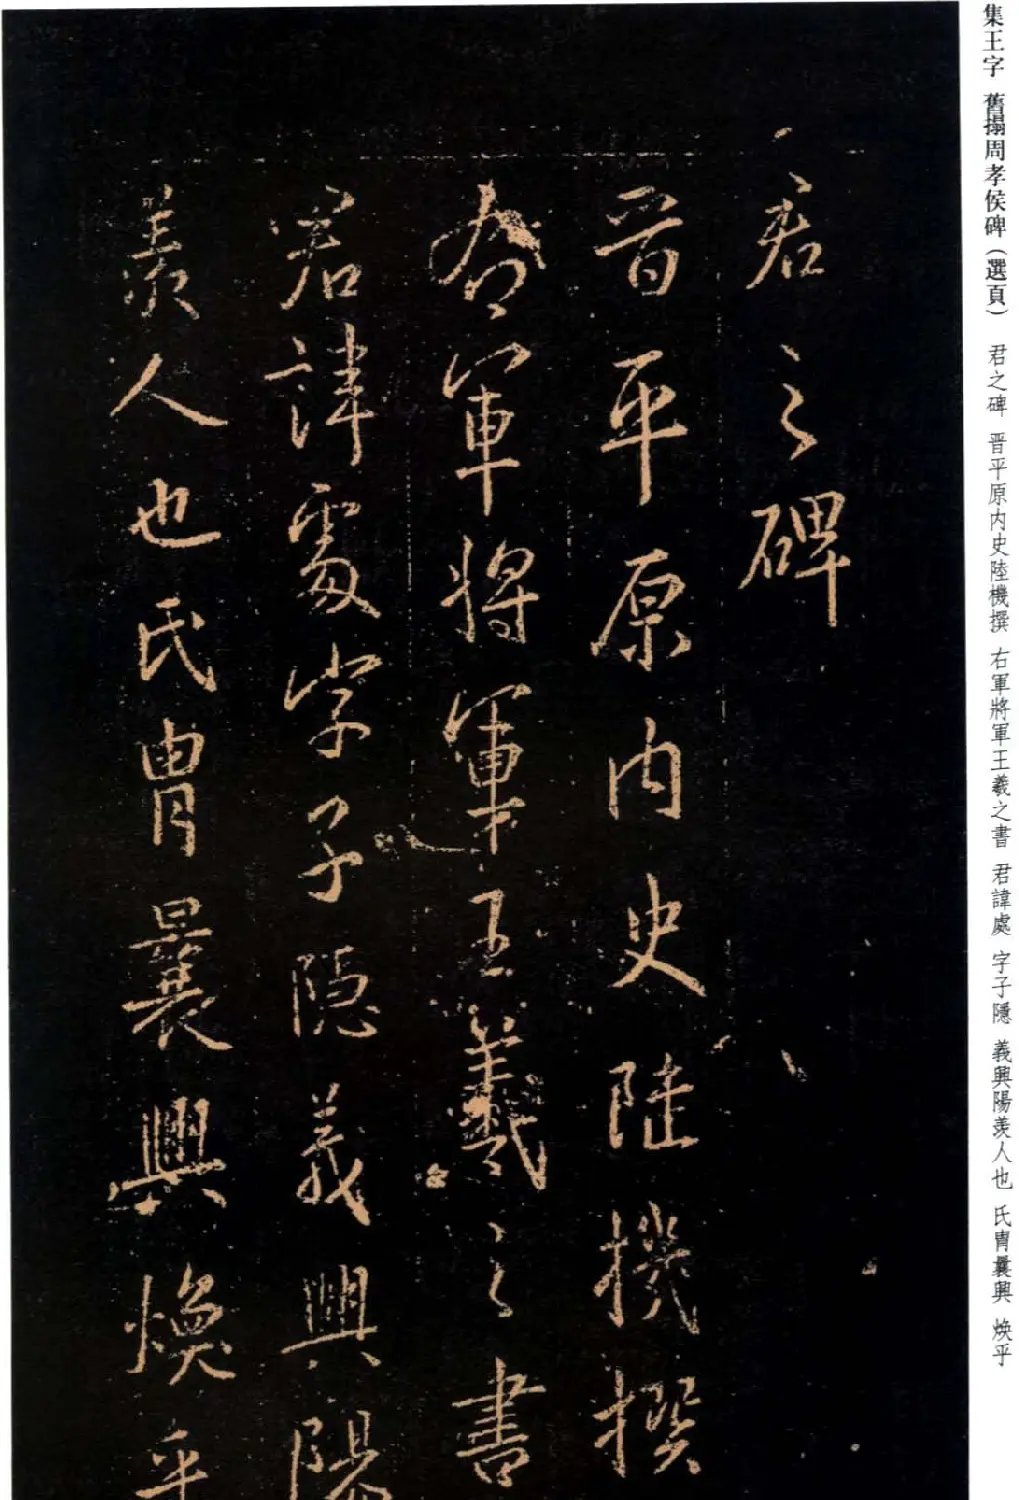 集王字 舊搨周孝侯碑(選頁) 君之碑 晋平原内史陸機撰 右軍將軍王羲之書 君諱處 字子隱 義興陽羨人也 氏胄曩興 焕乎
君之碑
晋平原内史陸機撰
右軍將軍王羲之書
君諱處字子隱義興陽
羨人也氏胄曩興焕乎